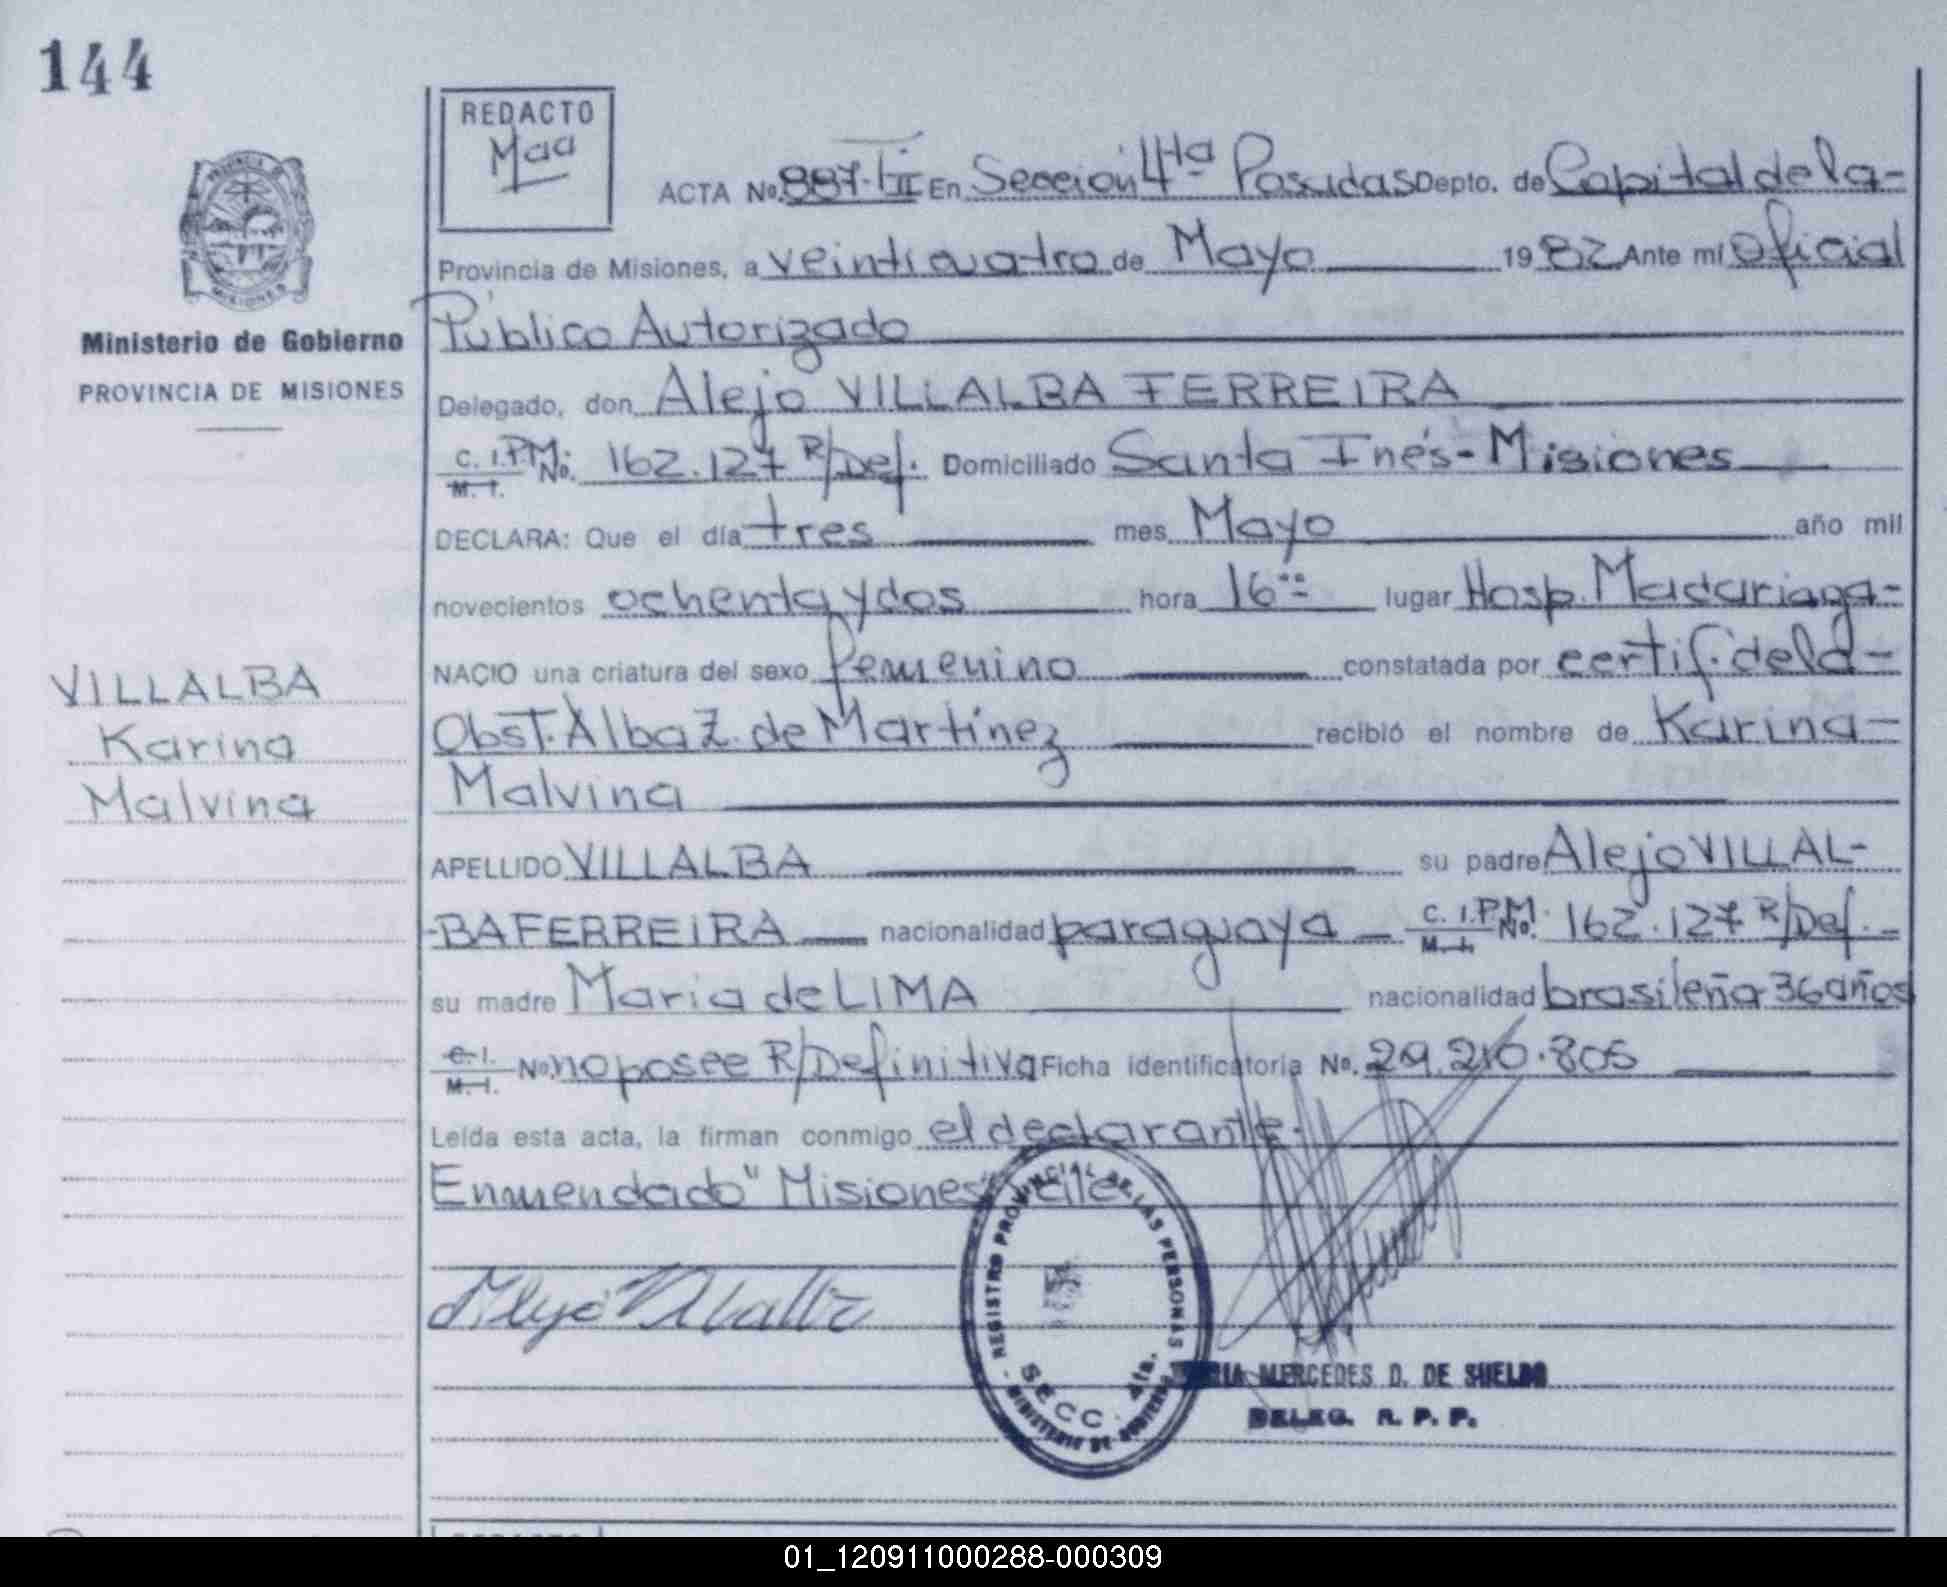 144
REDACTO
Maa
PROVINCIA DE
MISIONES
Ministerio de Gobierno
PROVINCIA DE MISIONES
ACTA No. 887-III En Sección 4ta Posadas Depto. de Capital de la-
Provincia de Misiones, a veinticuatro de Mayo 1982 Ante mí Oficial
Público Autorizado
Delegado, don Alejo VILLALBA FERREIRA
C. I. P.M. M. I. No. 162.127 R/Def. Domiciliado Santa Inés-Misiones
DECLARA: Que el día tres mes Mayo año mil
novecientos ochenta y dos hora 16°° lugar Hosp. Madariaga-
NACIO una criatura del sexo femenino constatada por certif. de la-
Obst. Alba Z. de Martínez recibió el nombre de Karina-
Malvina
APELLIDO VILLALBA su padre Alejo VILLAL-
-BA FERREIRA nacionalidad paraguaya C. I. P.M. M. I. No. 162.127 R/Def.-
su madre Maria de LIMA nacionalidad brasileña 36 años
C. I. M. I. No. no posee R/Definitiva Ficha identificatoria No. 29.210.805
Leída esta acta, la firman conmigo el declarante.
Enmendado "Misiones" vale
VILLALBA
Karina
Malvina
Alejo Villalba
REGISTRO PROVINCIAL DE LAS PERSONAS
SECC. 4ta.
MINISTERIO DE GOBIERNO
MARIA MERCEDES D. DE SHELDO
DELEG. R. P. P.
01_120911000288-000309